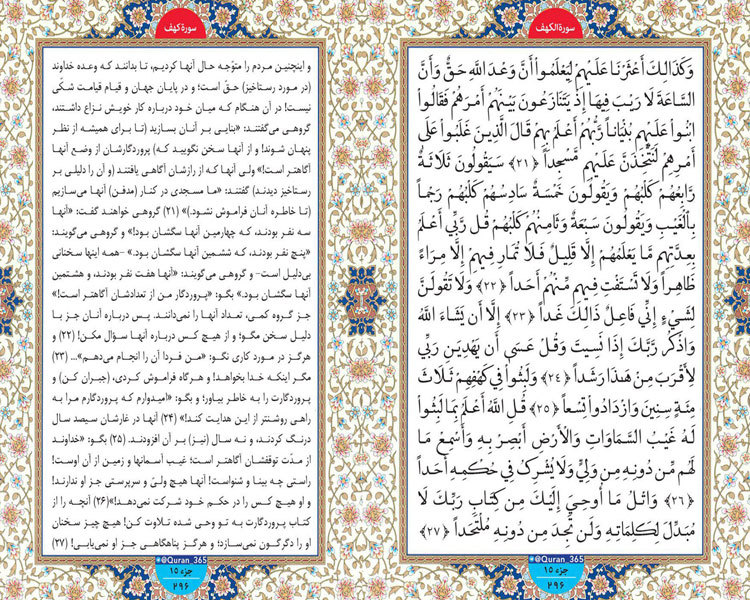 سورة الکهف
وَكَذَٰلِكَ أَعْثَرْنَا عَلَيْهِمْ لِيَعْلَمُوا أَنَّ وَعْدَ اللَّهِ حَقٌّ وَأَنَّ
السَّاعَةَ لَا رَيْبَ فِيهَا إِذْ يَتَنَازَعُونَ بَيْنَهُمْ أَمْرَهُمْ فَقَالُوا
ابْنُوا عَلَيْهِمْ بُنْيَاناً رَبُّهُمْ أَعْلَمُ بِهِمْ قَالَ الَّذِينَ غَلَبُوا عَلَىٰ
أَمْرِهِمْ لَنَتَّخِذَنَّ عَلَيْهِمْ مَسْجِداً ﴿۲۱﴾ سَيَقُولُونَ ثَلَاثَةٌ
رَابِعُهُمْ كَلْبُهُمْ وَيَقُولُونَ خَمْسَةٌ سَادِسُهُمْ كَلْبُهُمْ رَجْماً
بِالْغَيْبِ وَيَقُولُونَ سَبْعَةٌ وَثَامِنُهُمْ كَلْبُهُمْ قُل رَبِّي أَعْلَمُ
بِعِدَّتِهِم مَا يَعْلَمُهُمْ إِلَّا قَلِيلٌ فَلَا تُمَارِ فِيهِمْ إِلَّا مِرَاءً
ظَاهِراً وَلَا تَسْتَفْتِ فِيهِم مِنْهُمْ أَحَداً ﴿۲۲﴾ وَلَا تَقُولَنَّ
لِشَيْءٍ إِنِّي فَاعِلٌ ذَٰلِكَ غَداً ﴿۲۳﴾ إِلَّا أَن يَشَاءَ اللَّهُ
وَاذْكُر رَبَّكَ إِذَا نَسِيتَ وَقُلْ عَسَىٰ أَن يَهْدِيَنِ رَبِّي
لِأَقْرَبَ مِنْ هَٰذَا رَشَداً ﴿۲۴﴾ وَلَبِثُوا فِي كَهْفِهِمْ ثَلَاثَ
مِئَةٍ سِنِينَ وَازْدَادُوا تِسْعاً ﴿۲۵﴾ قُلِ اللَّهُ أَعْلَمُ بِمَا لَبِثُوا
لَهُ غَيْبُ السَّمَاوَاتِ وَالْأَرْضِ أَبْصِرْ بِهِ وَأَسْمِعْ مَا
لَهُم مِّن دُونِهِ مِن وَلِيٍّ وَلَا يُشْرِكُ فِي حُكْمِهِ أَحَداً
﴿۲۶﴾ وَاتْلُ مَا أُوحِيَ إِلَيْكَ مِن كِتَابِ رَبِّكَ لَا
مُبَدِّلَ لِكَلِمَاتِهِ وَلَن تَجِدَ مِن دُونِهِ مُلْتَحَداً ﴿۲۷﴾
@Quran_365
جزء ۱۵
۲۹۶
سورة کهف
و اینچنین مردم را متوّجه حال آنها کردیم، تا بدانند که وعده خداوند
(در مورد رستاخیز) حقّ است؛ و در پایان جهان و قیام قیامت شکّی
نیست! در آن هنگام که میان خود درباره کار خویش نزاع داشتند،
گروهی می‌گفتند: «بنایی بر آنان بسازید (تا برای همیشه از نظر
پنهان شوند! و از آنها سخن نگویید که) پروردگارشان از وضع آنها
آگاهتر است!» ولی آنها که از رازشان آگاهی یافتند (و آن را دلیلی بر
رستاخیز دیدند) گفتند: «ما مسجدی در کنار (مدفن) آنها می‌سازیم
(تا خاطره آنان فراموش نشود.)» (۲۱) گروهی خواهند گفت: «آنها
سه نفر بودند، که چهارمین آنها سگشان بود!» و گروهی می‌گویند:
«پنج نفر بودند، که ششمین آنها سگشان بود.» -همه اینها سخنانی
بی‌دلیل است- و گروهی می‌گویند: «آنها هفت نفر بودند، و هشتمین
آنها سگشان بود.» بگو: «پروردگار من از تعدادشان آگاهتر است!»
جز گروه کمی، تعداد آنها را نمی‌دانند. پس درباره آنان جز با
دلیل سخن مگو؛ و از هیچ کس درباره آنها سؤال مکن! (۲۲) و
هرگز در مورد کاری نگو: «من فردا آن را انجام می‌دهم»... (۲۳)
مگر اینکه خدا بخواهد! و هرگاه فراموش کردی، (جبران کن) و
پروردگارت را به خاطر بیاور؛ و بگو: «امیدوارم که پروردگارم مرا به
راهی روشنتر از این هدایت کند!» (۲۴) آنها در غارشان سیصد سال
درنگ کردند، و نه سال (نیز) بر آن افزودند. (۲۵) بگو: «خداوند
از مدّت توقفشان آگاهتر است؛ غیب آسمانها و زمین از آن اوست!
راستی چه بینا و شنواست! آنها هیچ ولیّ و سرپرستی جز او ندارند!
و او هیچ کس را در حکم خود شرکت نمی‌دهد!»(۲۶) آنچه را از
کتاب پروردگارت به تو وحی شده تلاوت کن! هیچ چیز سخنان
او را دگرگون نمی‌سازد؛ و هرگز پناهگاهی جز او نمی‌یابی! (۲۷)
@Quran_365
جزء ۱۵
۲۹۶